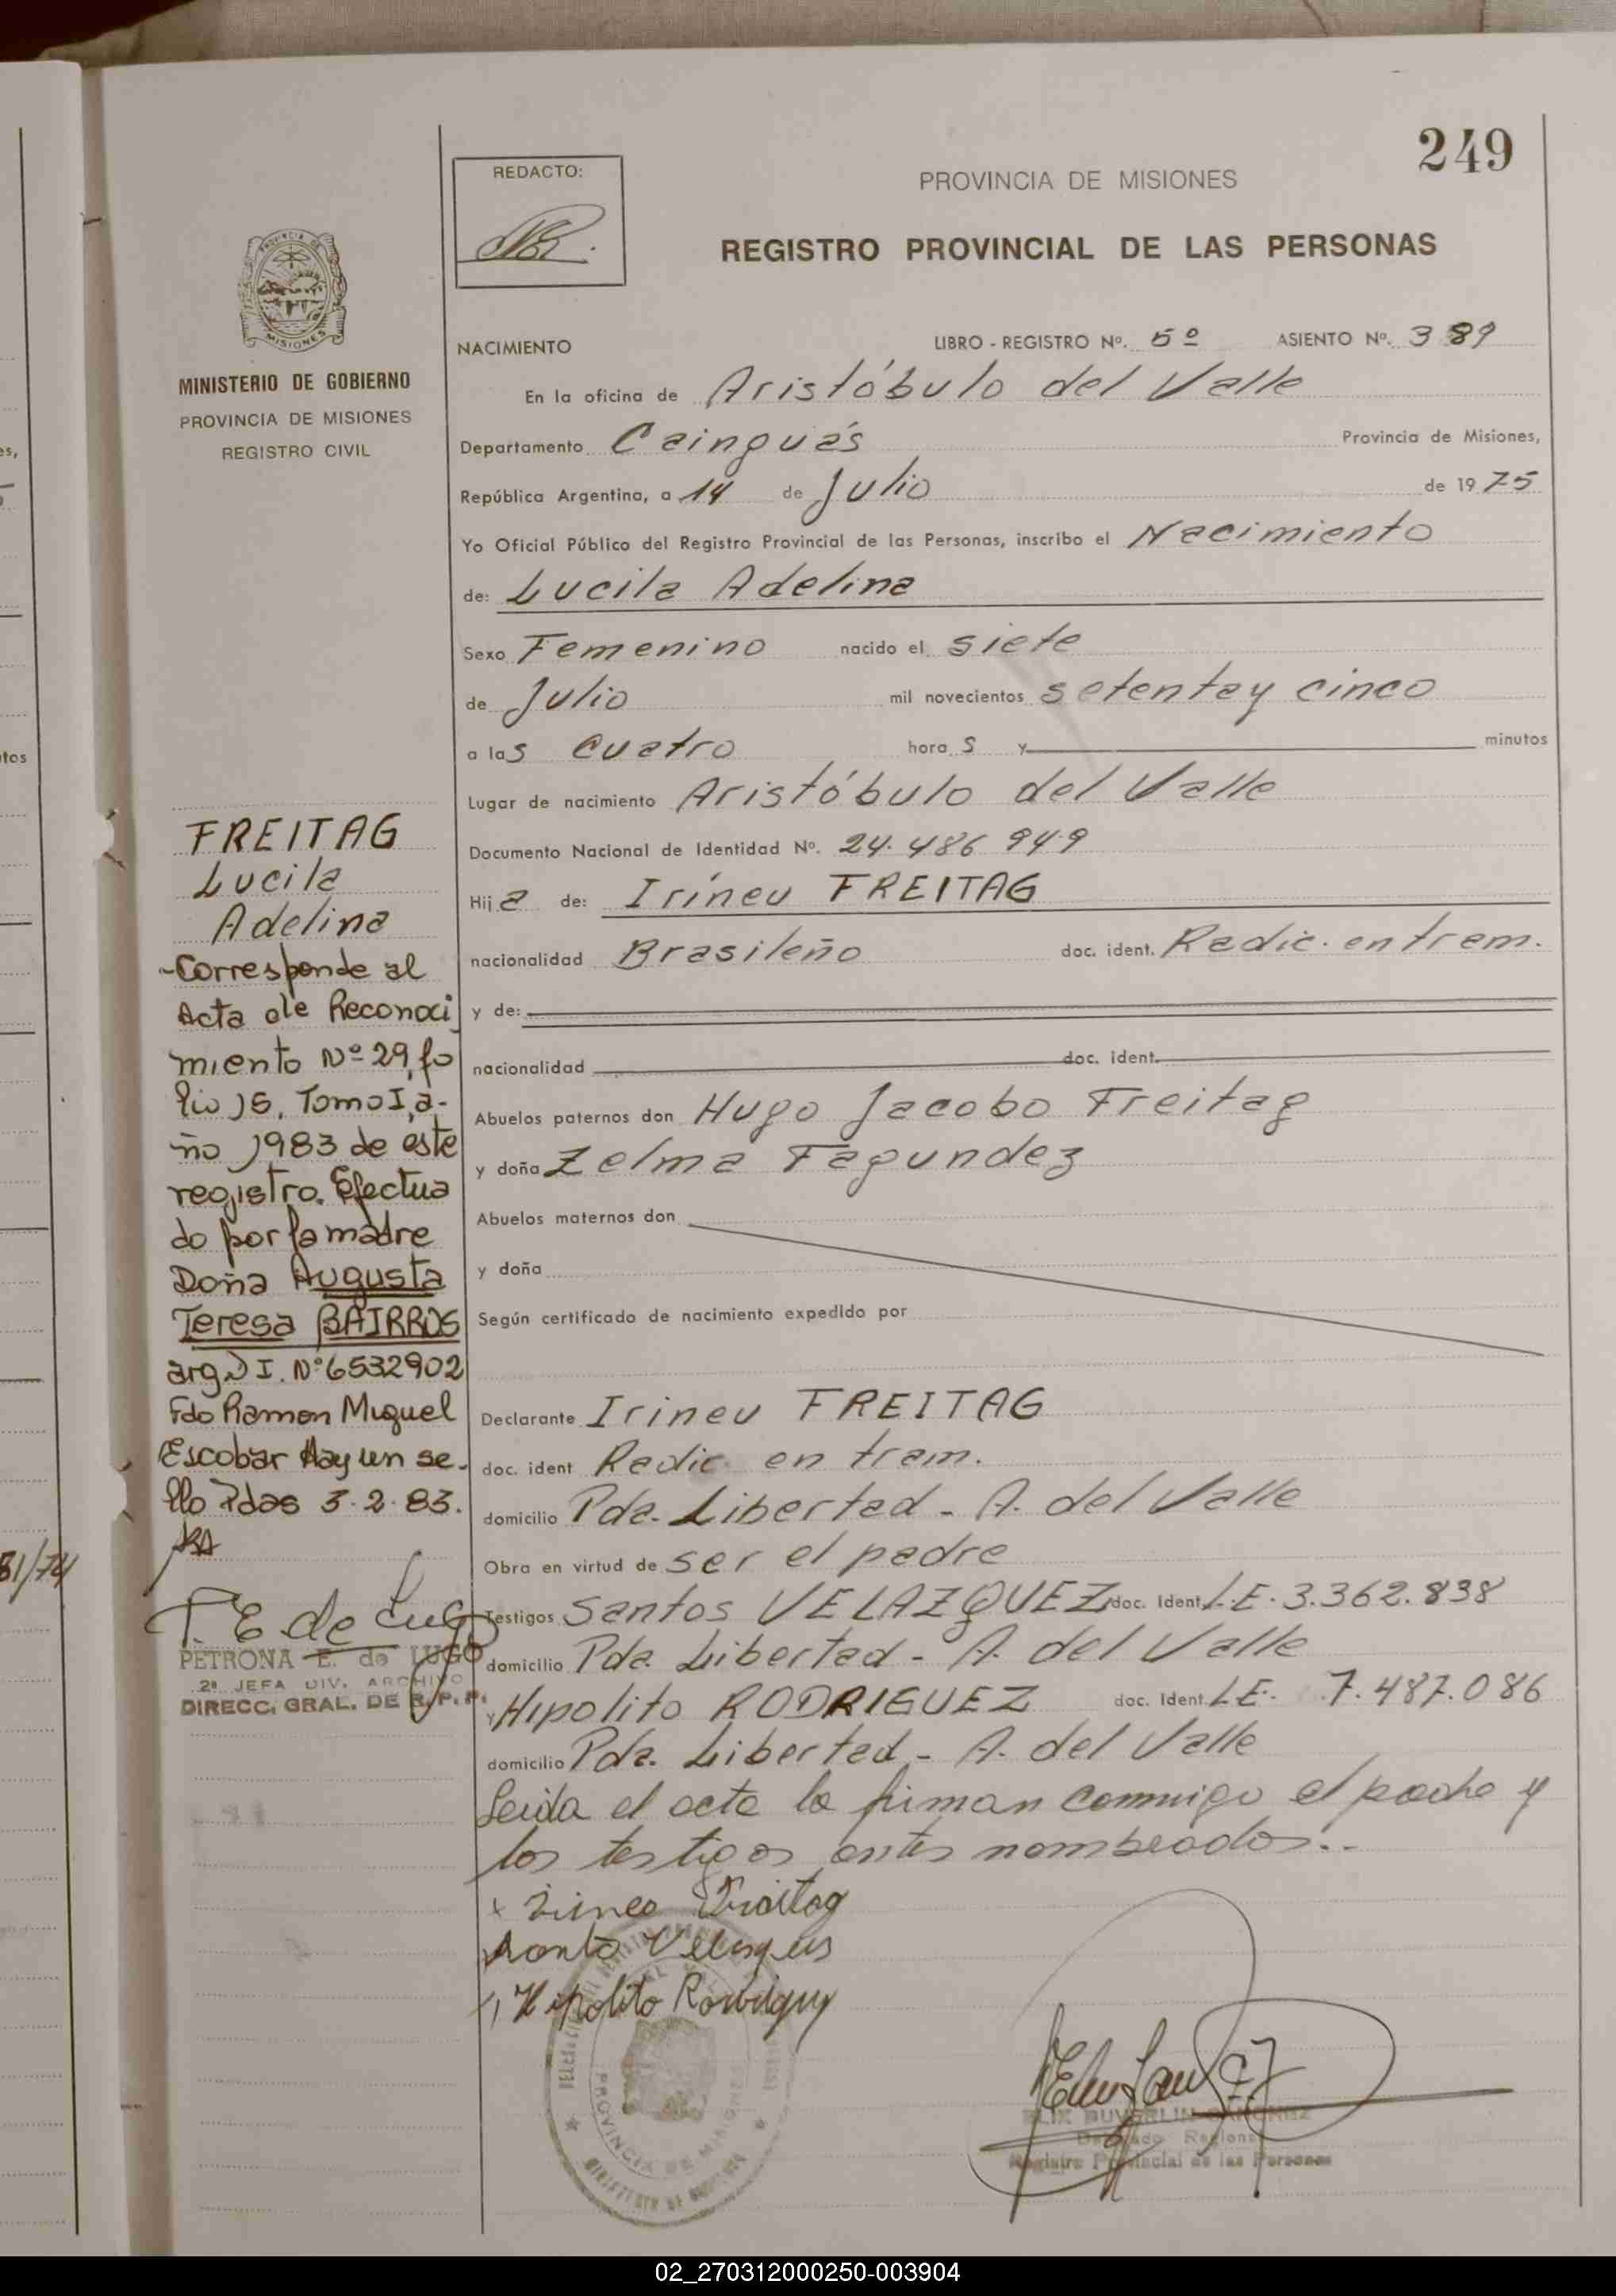 249
REDACTO:
PROVINCIA DE MISIONES
REGISTRO PROVINCIAL DE LAS PERSONAS
PROVINCIA DE
MISIONES
MINISTERIO DE GOBIERNO
PROVINCIA DE MISIONES
REGISTRO CIVIL
NACIMIENTO LIBRO - REGISTRO Nº. 5º ASIENTO Nº. 389
En la oficina de Aristóbulo del Valle
Departamento Cainguás Provincia de Misiones,
República Argentina, a 14 de Julio de 1975
Yo Oficial Público del Registro Provincial de las Personas, inscribo el Nacimiento
de: Lucila Adelina
Sexo Femenino nacido el siete
de Julio mil novecientos setentay cinco
a las cuatro hora s y minutos
Lugar de nacimiento Aristóbulo del Valle
Documento Nacional de Identidad Nº. 24.486 949
Hij a de: Irineu FREITAG
nacionalidad Brasileño doc. ident. Radic. en tram.
y de:
nacionalidad doc. ident.
Abuelos paternos don Hugo Jacobo Freitag
y doña Zelma Fagundez
Abuelos maternos don
y doña
Según certificado de nacimiento expedido por
Declarante Irineu FREITAG
doc. ident Radic en tram.
domicilio Pda. Libertad - A. del Valle
Obra en virtud de ser el padre
Testigos Santos VELAZQUEZ doc. Ident. L.E. 3.362.838
domicilio Pda. Libertad - A. del Valle
y Hipolito RODRIGUEZ doc. Ident. L.E. 7.487.086
domicilio Pda. Libertad - A. del Valle
Leida el acta la firman conmigo el padre y
los testigos antes nombrados..-
Hipolito Rodriguez
FREITAG
Lucila
Adelina
-Corresponde al
Acta de Reconoci
miento Nº 29, fo
lio 15, Tomo I, a-
ño 1983 de este
registro. Efectua
do por la madre
Doña Augusta
Teresa BAIRROS
arg. D I. Nº 6532902
Fdo Ramon Miguel
Escobar Hay un se-
llo Pdas 3.2.83.
T. E de Lugo
PETRONA E. de LUGO
2ª JEFA DIV. ARCHIVO
DIRECC. GRAL. DE R. P. P.
PROVINCIA DE MISIONES
Registro Provincial de las Personas
es,
tos
81/74
02_270312000250-003904